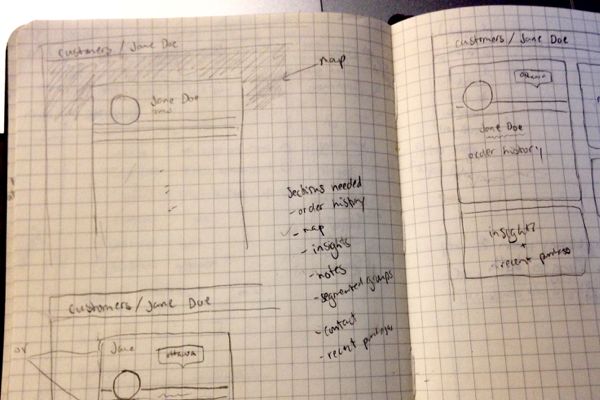 customers / Jane Doe
map
Jane Doe
Sections needed
- order history
- map
- insights
- notes
- segmented groups
- contact
- recent purchases
customers / Jane Doe
or
Jane
Ottawa
customers / Jane Doe
Ottawa
Jane Doe
order history
insights
+
recent purchases